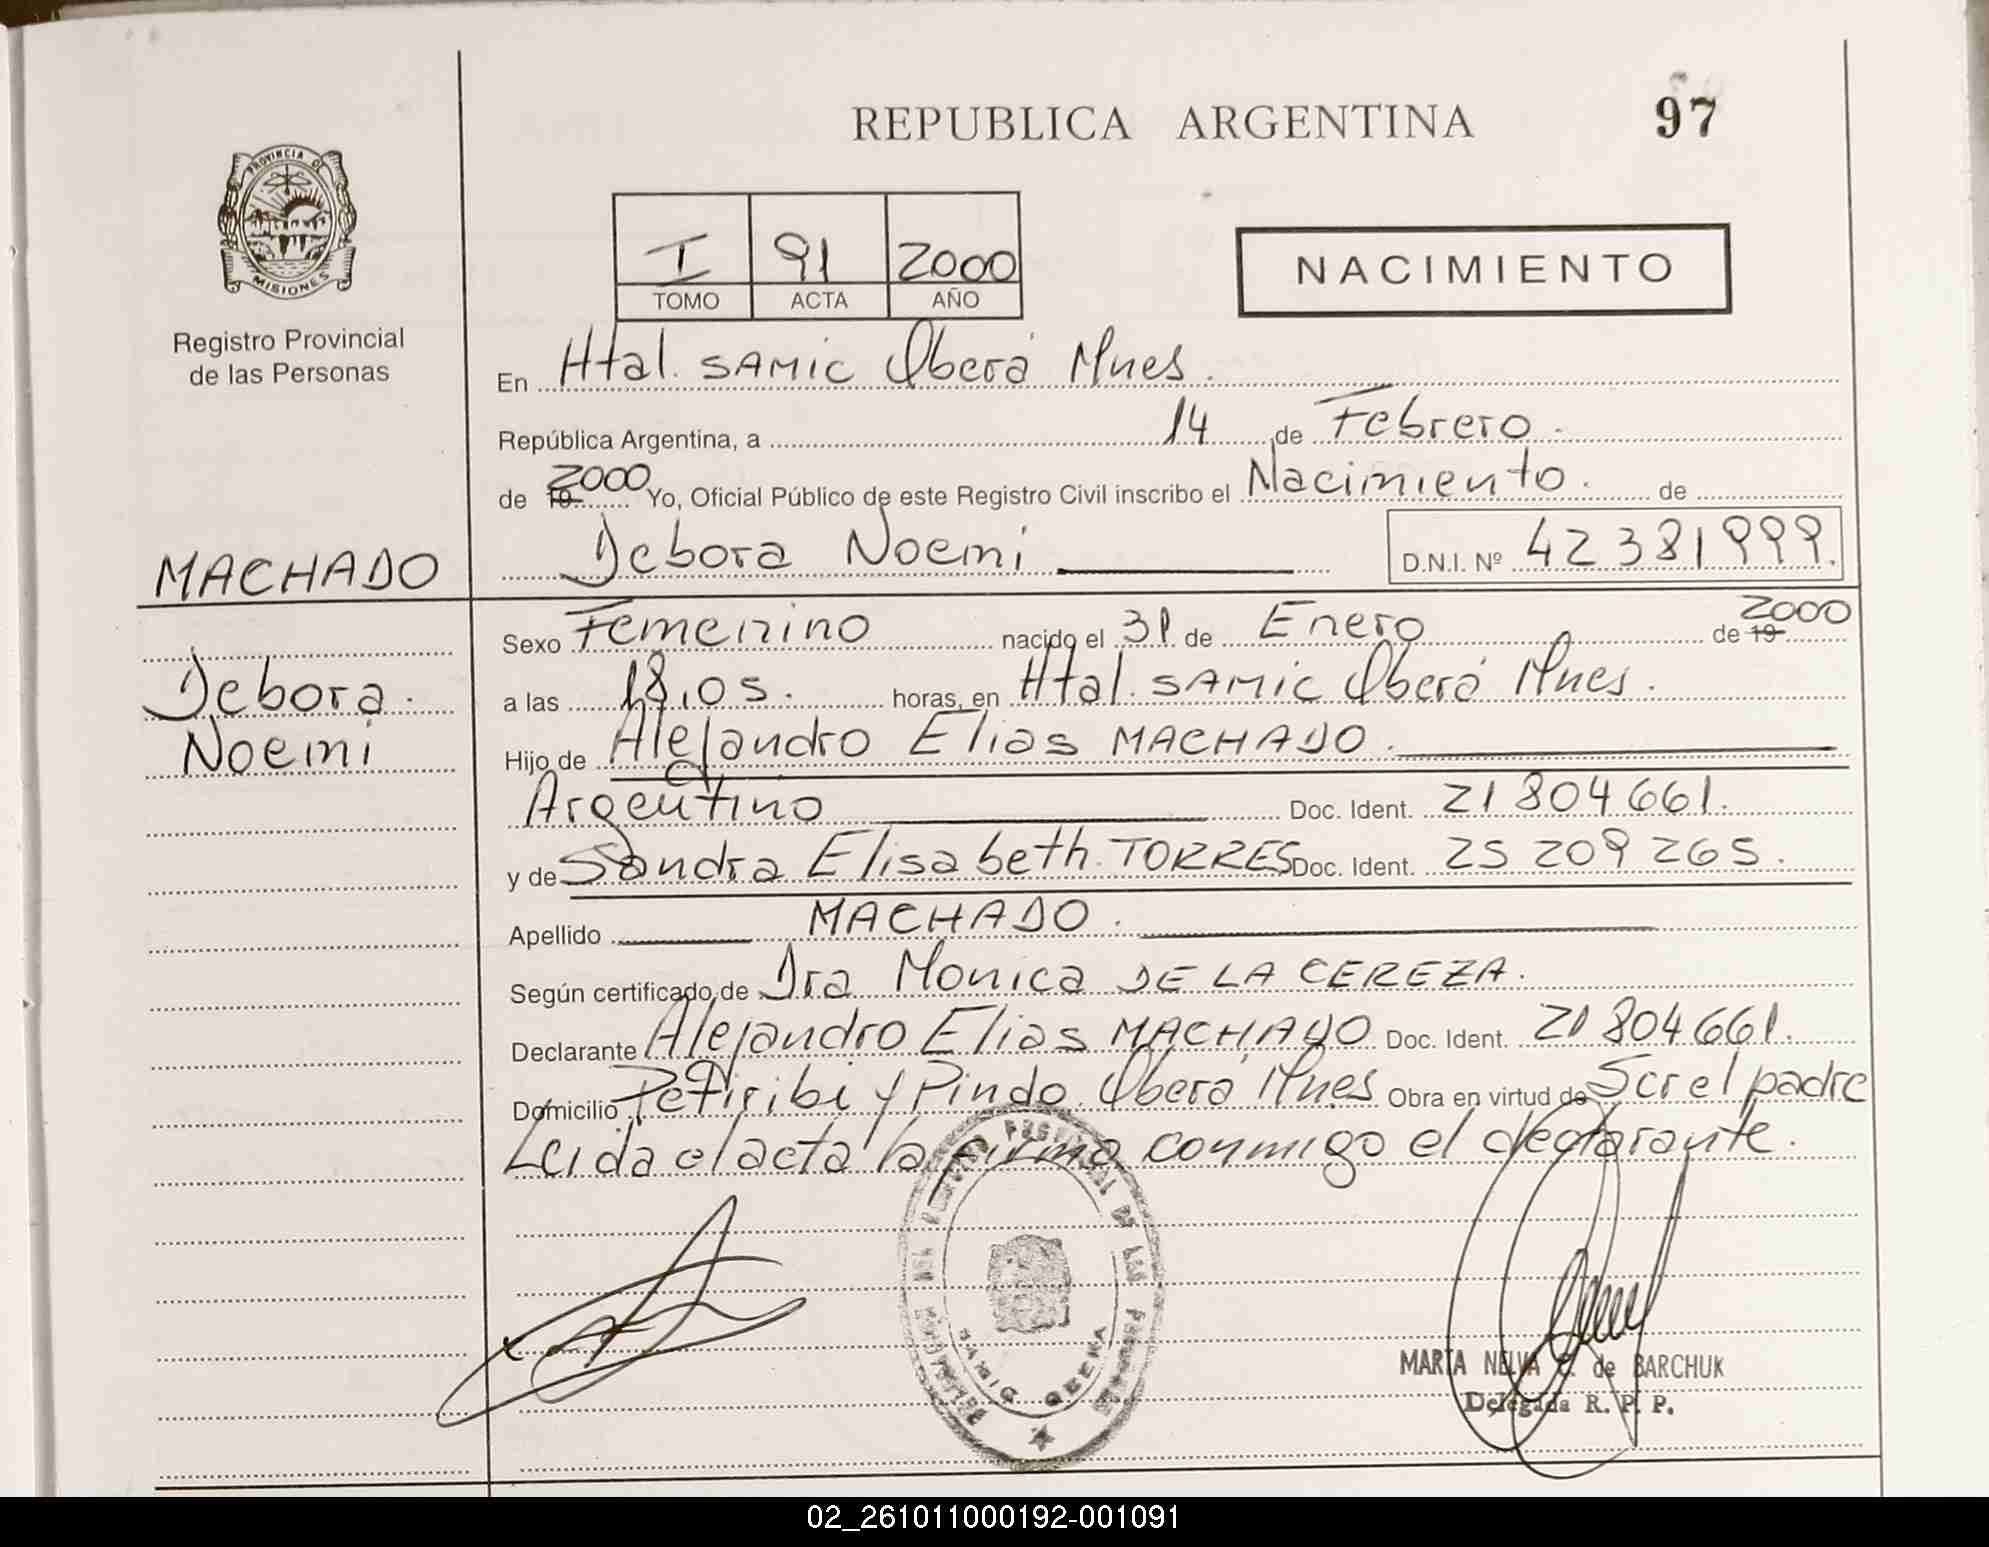 REPUBLICA ARGENTINA
97
PROVINCIA DE
MISIONES
Registro Provincial
de las Personas
I 91 2000
TOMO ACTA AÑO
NACIMIENTO
En Htal. SAMIC Oberá Mnes.
República Argentina, a 14 de Febrero.
de 19 2000 Yo, Oficial Público de este Registro Civil inscribo el Nacimiento. de
Debora Noemi D.N.I. Nº 42381999.
MACHADO
Debora.
Noemi
Sexo Femenino nacido el 31 de Enero de 19 2000
a las 18,05. horas, en Htal. SAMIC Oberá Mnes.
Hijo de Alejandro Elias MACHADO.
Argentino Doc. Ident. 21804661.
y de Sandra Elisabeth TORRES Doc. Ident. 25209265.
Apellido MACHADO.
Según certificado de Dra Monica DE LA CEREZA.
Declarante Alejandro Elias MACHADO Doc. Ident. 21804661.
Domicilio Petiribi y Pindo Oberá Mnes Obra en virtud de Ser el padre
Leida el acta la firma conmigo el declarante.
MARIA NELVA de BARCHUK
Delegada R. P. P.
02_261011000192-001091